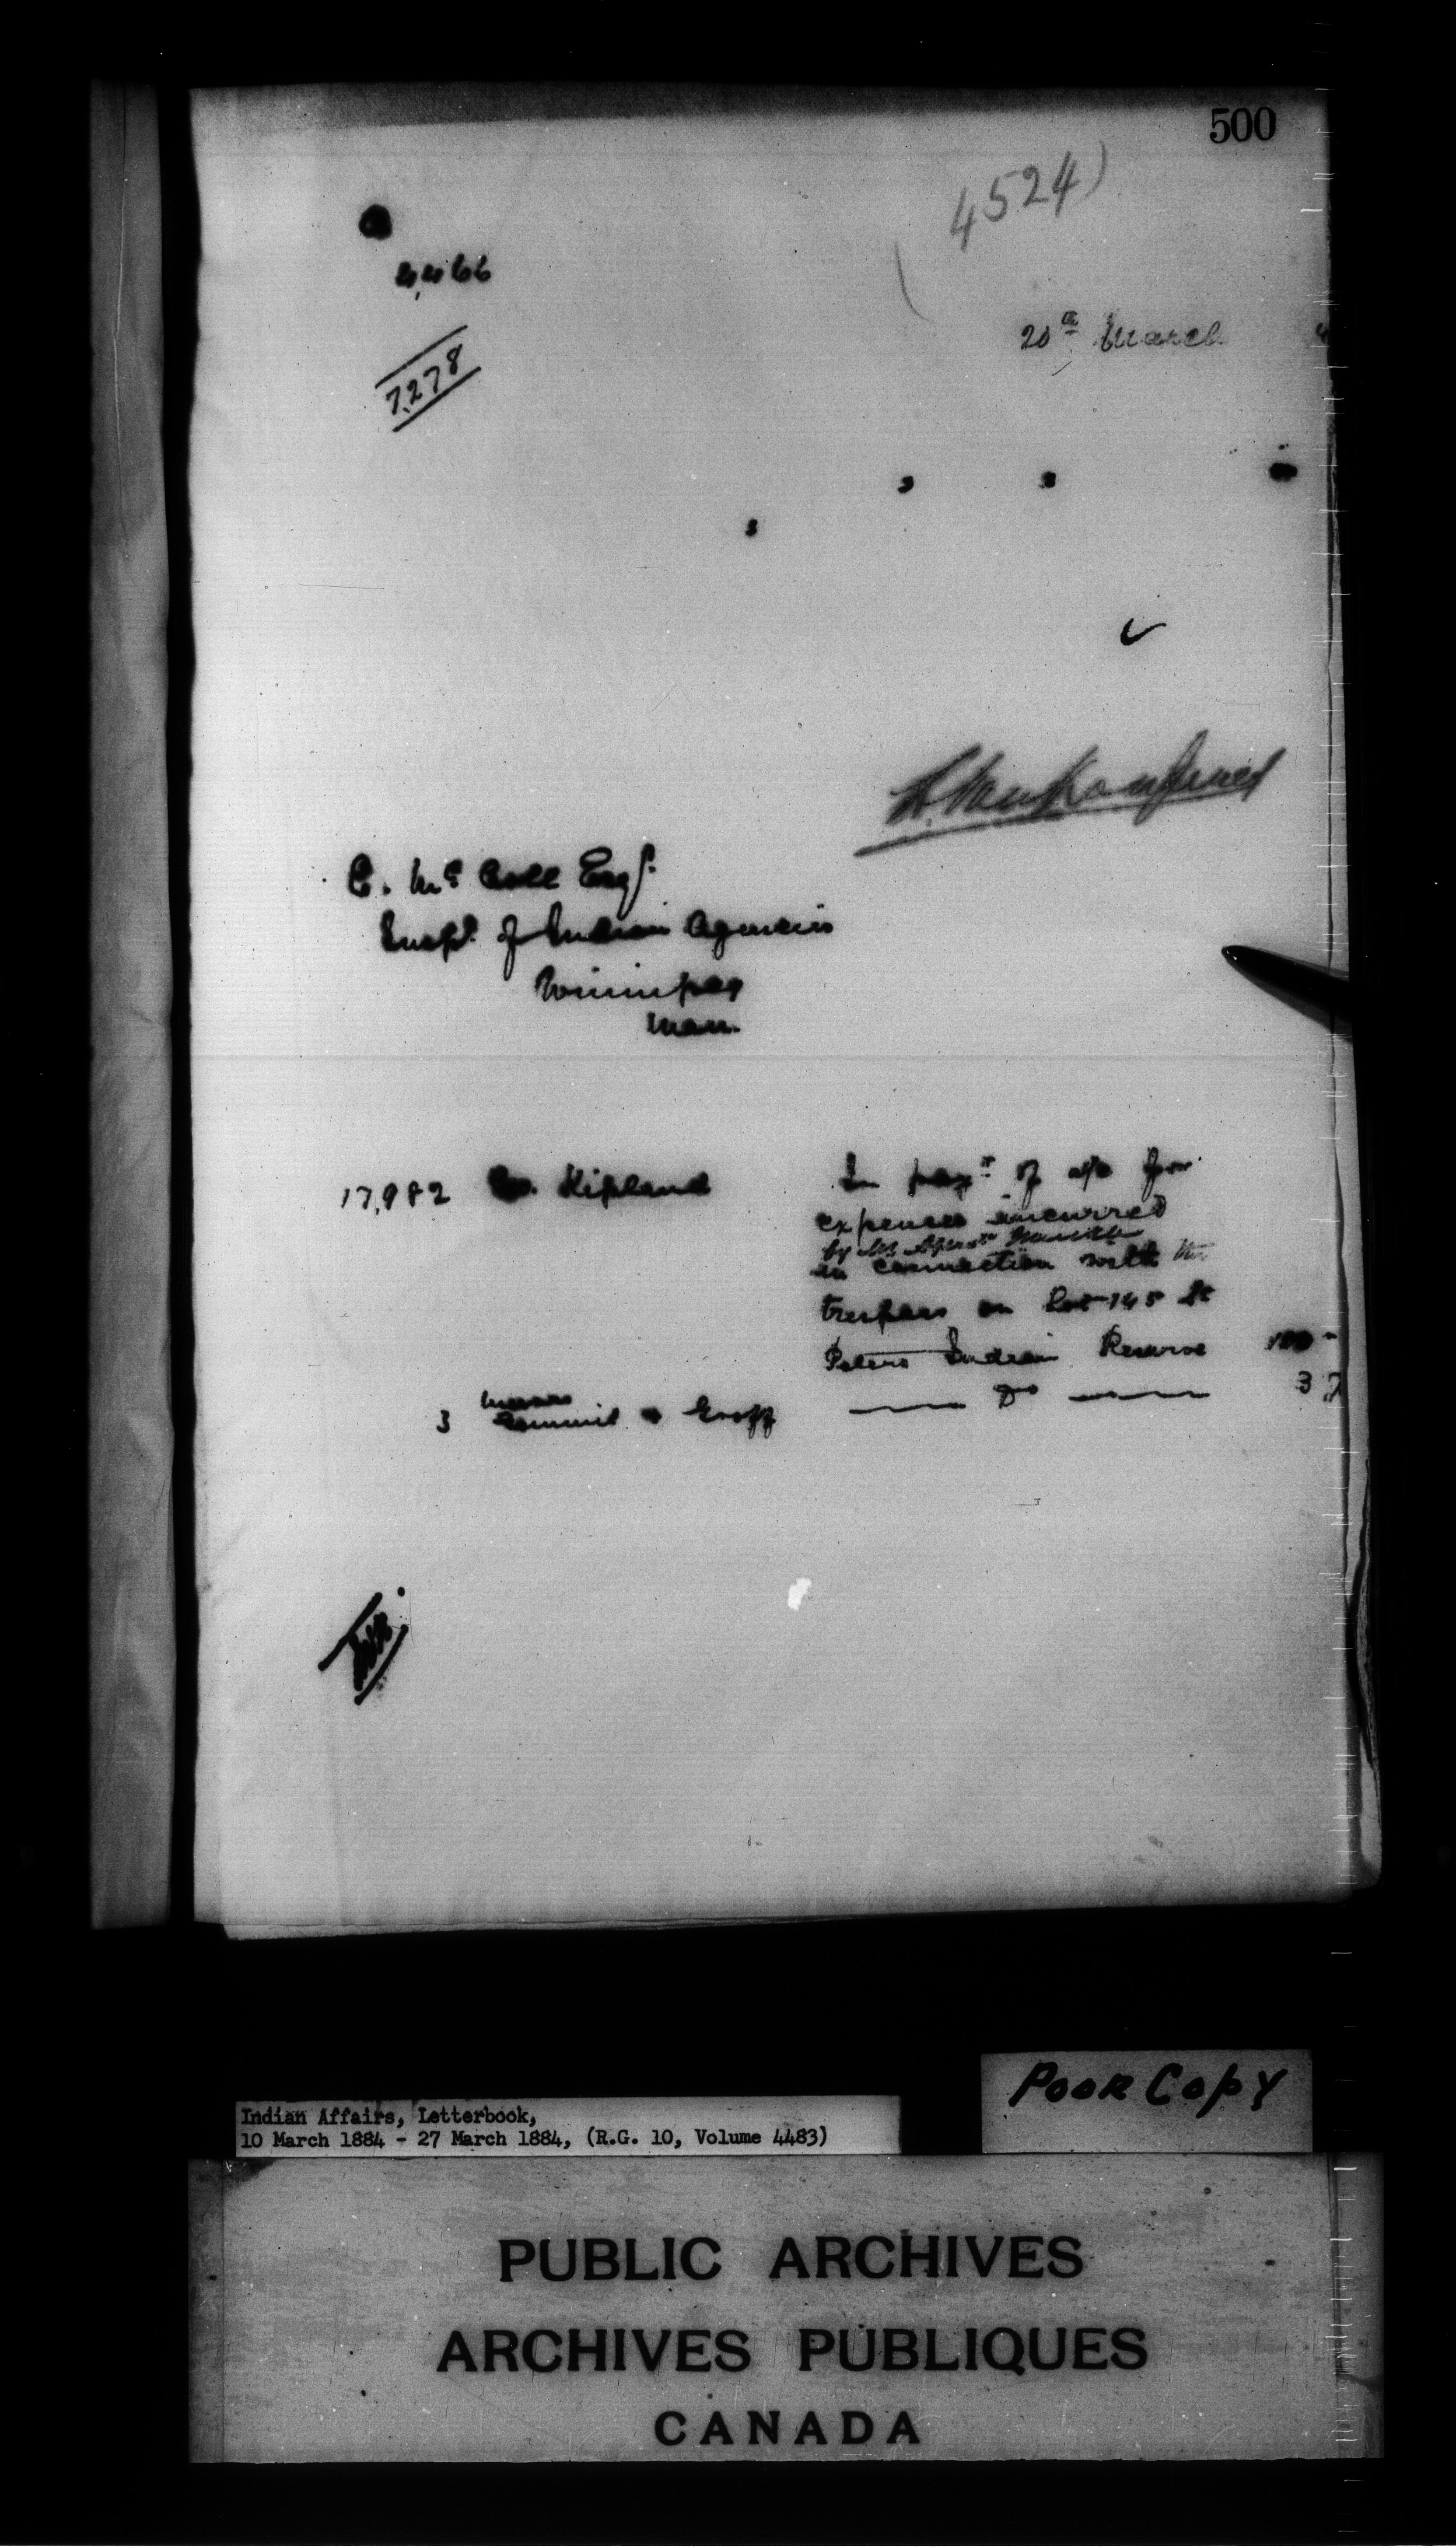 500
4524)
4,466
20th March 4
7,278
L. VanKoughnet
E. McColl Esqr.
Inspr. of Indian Agencies
Winnipeg
Man.
17,982 Kipland In paymt of a/c for
expenses incurred
by Mr
in connection with the
trespass on Lot 145 St
Peters Indian Reserve 100 -
3 Messrs & Groff Do 37
Indian Affairs, Letterbook,
10 March 1884 - 27 March 1884, (R.G. 10, Volume 4483)
POOR COPY
PUBLIC ARCHIVES
ARCHIVES PUBLIQUES
CANADA